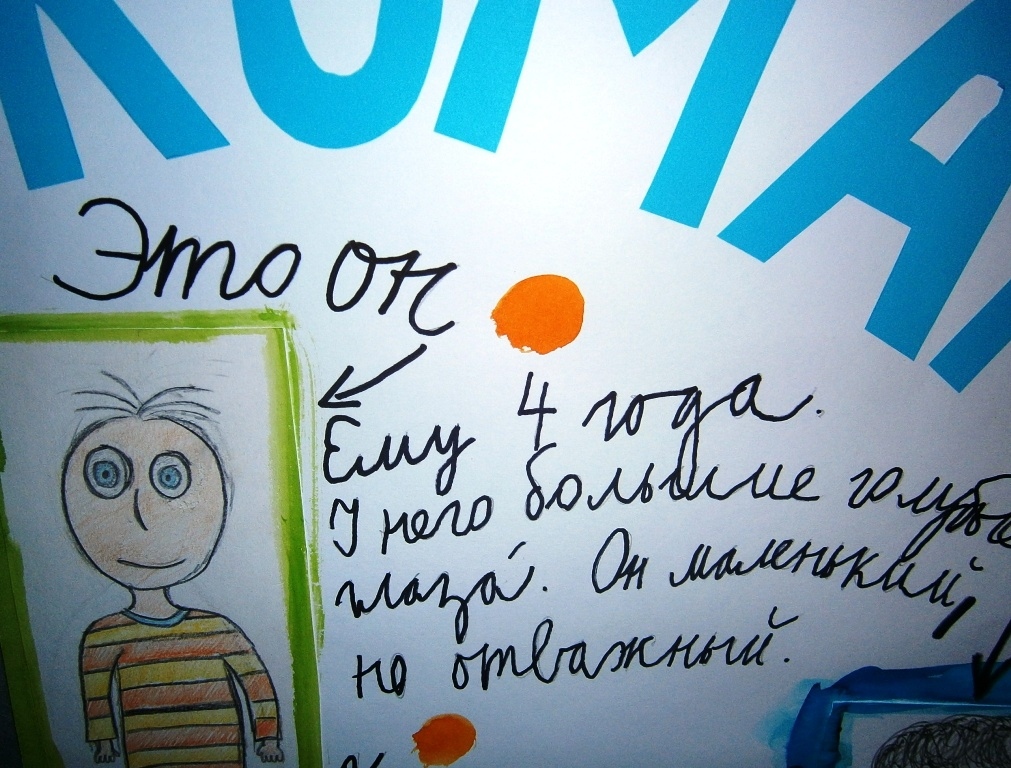 КОМА
Это он
Ему 4 года.
У него большие голубые
глаза. Он маленький,
но отважный.